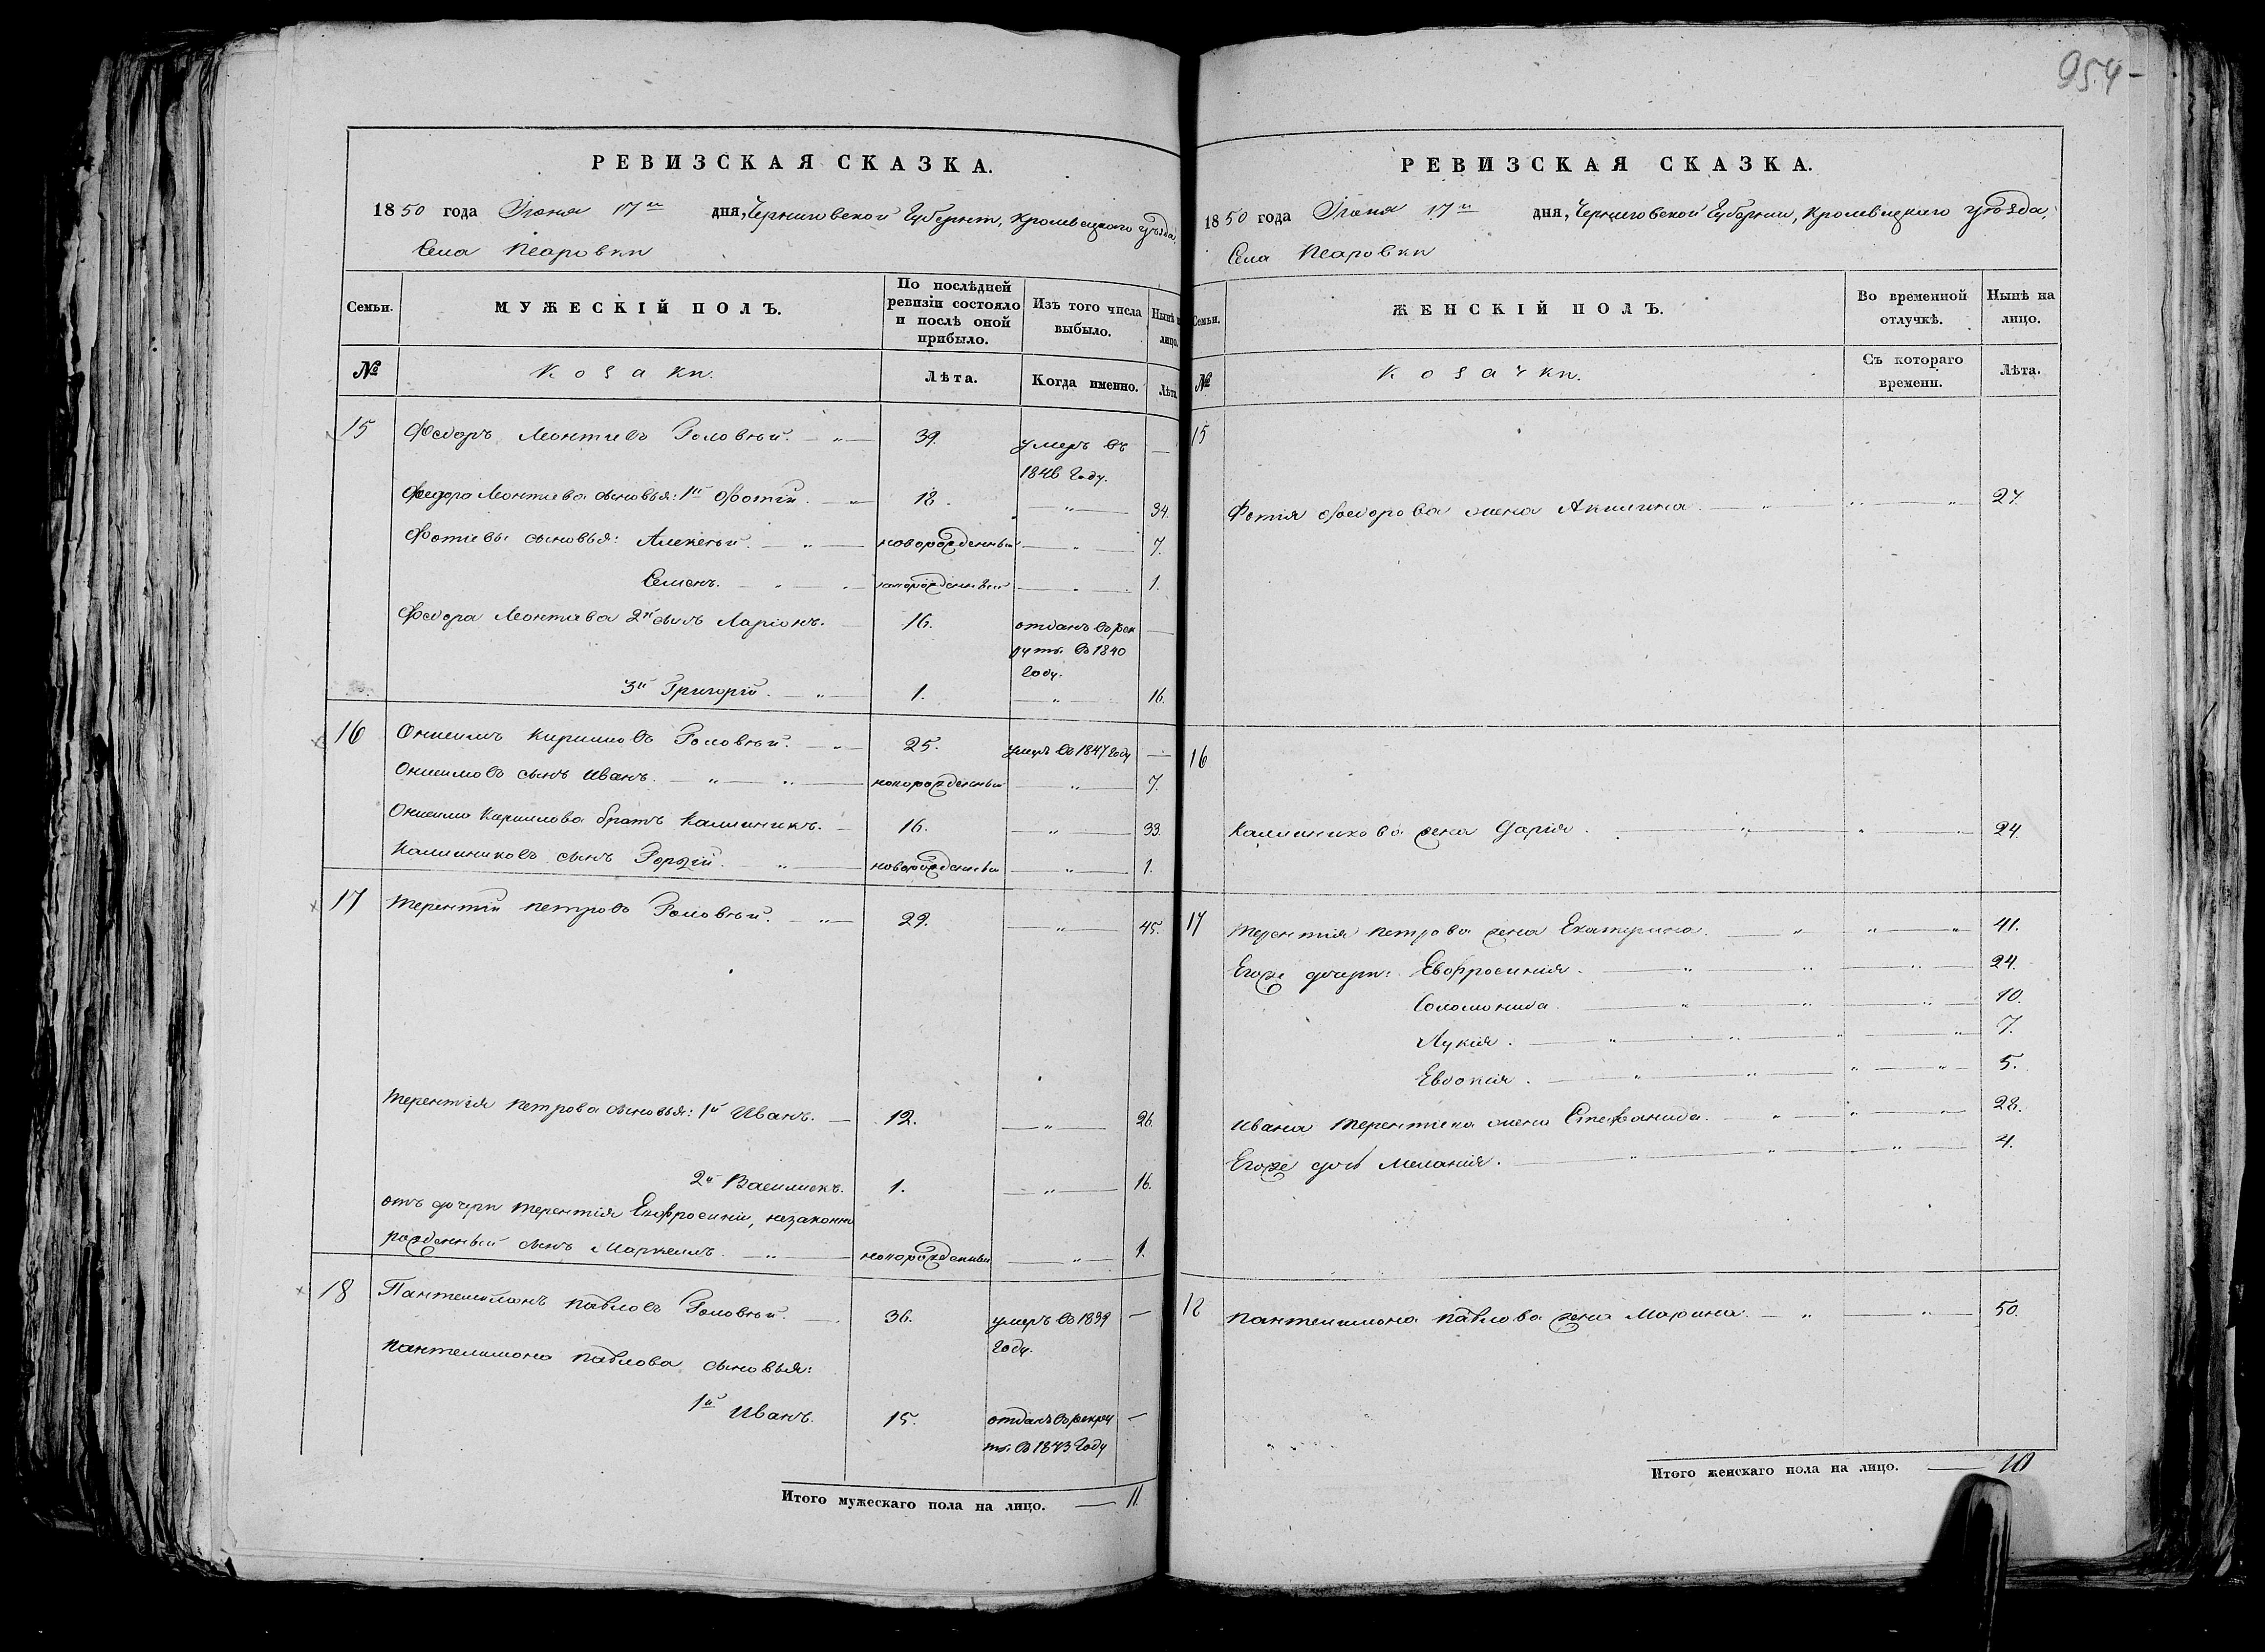 954
РЕВИЗСКАЯ СКАЗКА.
1850 года Іюня 17го дня, Черниговской Губерніи, Кролевецкаго уѣзда,
Села Псаровки
Семьи.
МУЖЕСКІЙ ПОЛЪ.
По послѣдней ревизіи состояло и послѣ оной прибыло.
Изъ того числа выбыло.
Нынѣ на лицо.
№
Козаки.
Лѣта.
Когда именно.
Лѣта.
15 Федоръ Леонтіевъ Головній. — „ — 39. умеръ въ —
1848 году.
Федора Леонтіева сыновья: 1й Фотій. — „ — 18. — „ — 34.
Фотіевы сыновья: Алексѣй. — „ — новорожденный — „ — 7.
Семенъ. — „ — новорожденный — „ — 1.
Федора Леонтіева 2й сынъ Ларіонъ. — 16. отданъ въ рек —
руты въ 1840
году.
3й Григорій. — „ — 1. — „ — 16.
16 Онисимъ Кириловъ Головній. — „ — 25. умеръ въ 1847 году —
Онисимовъ сынъ Иванъ. — „ — „ — новорожденный — „ — 7.
Онисима Кирилова братъ Калиникъ. — 16. — „ — 33.
Калиниковъ сынъ Гордій. — „ — новорожденный — „ — 1.
17 Терентій Петровъ Головній. — „ — 29. — „ — 45.
Терентія Петрова сыновья: 1й Иванъ. — 12. — „ — 26.
2й Василискъ. 1. — „ — 16.
отъ дочери Терентія Евфросиніи, незаконно
рожденный сынъ Маркеллъ. — „ — новорожденный — „ — 1.
18 Пантелимонъ Павловъ Головній. — 36. умеръ въ 1839 —
году.
Пантелимона Павлова сыновья:
1й Иванъ. 15. отданъ въ рекру —
ты въ 1843 году
Итого мужескаго пола на лицо. — 11.
РЕВИЗСКАЯ СКАЗКА.
1850 года Іюня 17го дня, Черниговской Губерніи, Кролевецкаго уѣзда,
Села Псаровки
Семьи.
ЖЕНСКІЙ ПОЛЪ.
Во временной отлучкѣ.
Нынѣ на лицо.
№
Козачки.
Съ котораго времени.
Лѣта.
15
Фотія Федорова жена Акилина. — „ — „ — „ 27.
16
Калиникова жена Дарія. — „ — „ — „ — 24.
17 Терентія Петрова жена Екатерина. — „ — „ — „ — 41.
Егоже дочери: Евфросинія. — „ — „ — „ — 24.
Соломонида. — „ — „ — „ — 10.
Лукія. — „ — „ — „ — „ — 7.
Евдокія. — „ — „ — „ — „ — 5.
Ивана Терентіева жена Стефанида. — „ — „ — „ — 28.
Егоже дочь Меланія. — „ — „ — „ — 4.
18 Пантелимона Павлова жена Марина. — „ — „ — 50.
Итого женскаго пола на лицо. — 10